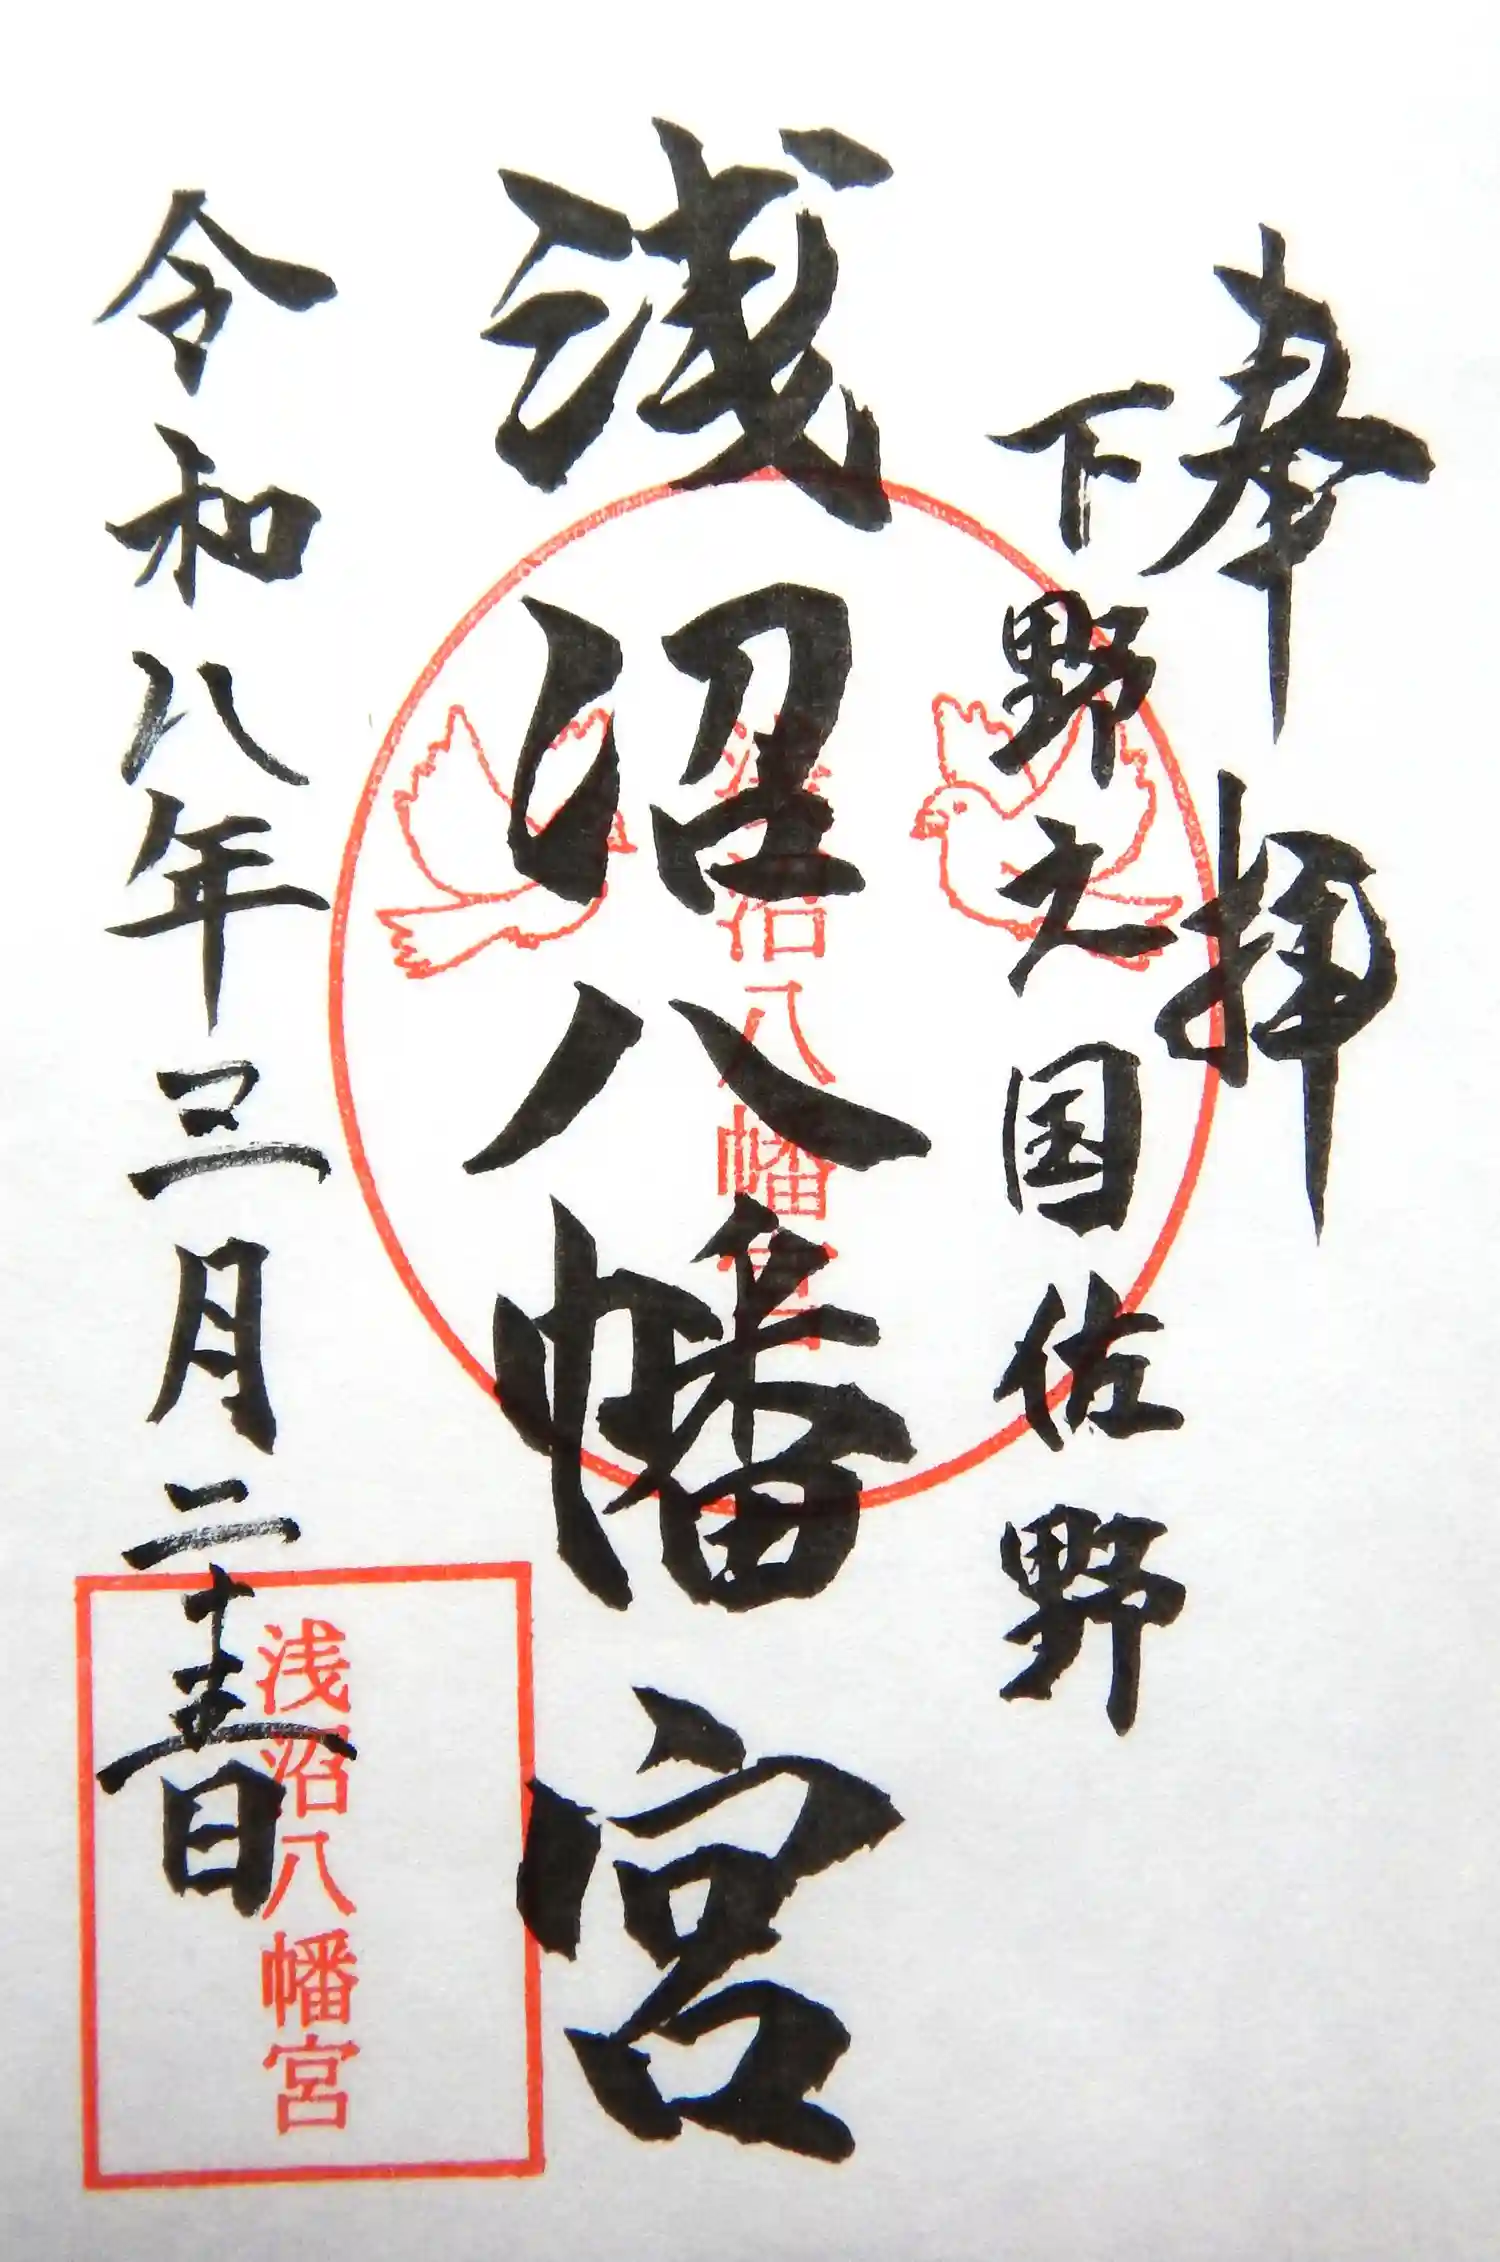 奉拝
下野之国佐野
浅沼八幡宮
浅沼八幡宮
令和八年三月二十五日
浅沼八幡宮